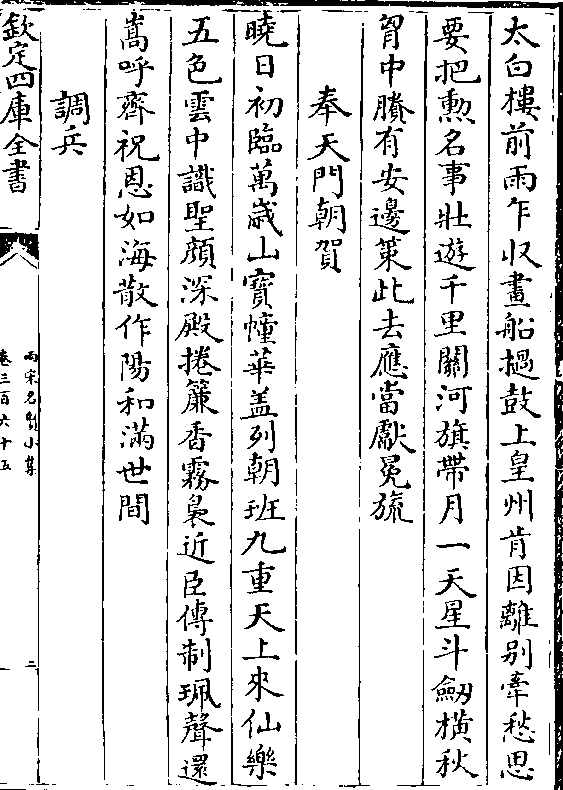 太白樓前雨乍收畫船撾鼓上皇州肯因離别牽愁思
要把勲名事壯遊千里關河旗帶月一天星斗劒横秋
胷中賸有安邊策此去應當獻冕旒
奉天門朝賀
曉日初臨萬歲山寳幢華盖列朝班九重天上來仙樂
五色雲中識聖顔深殿捲簾香霧裊近臣傳制珮聲還
嵩呼齊祝恩如海散作陽和滿世間
調兵
欽定四庫全書
兩宋名賢小集
卷三百六十五
二